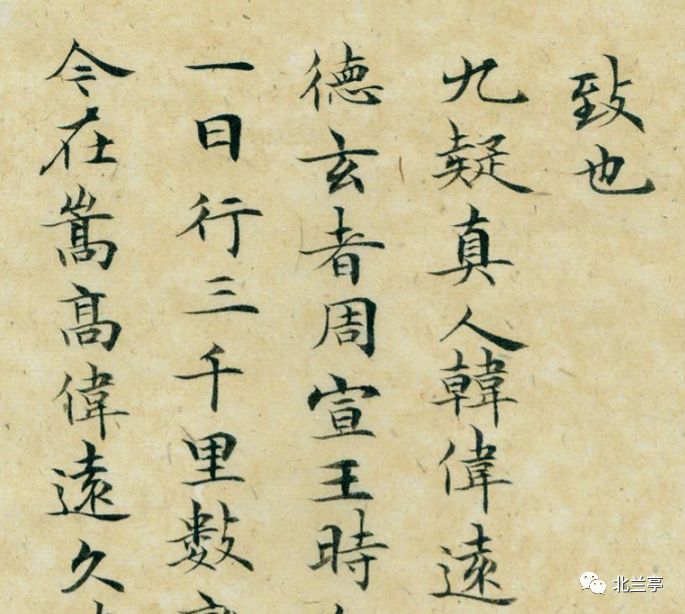 致也
九疑真人韓偉遠
德玄者周宣王時
一日行三千里數
今在嵩高偉遠久
北兰亭